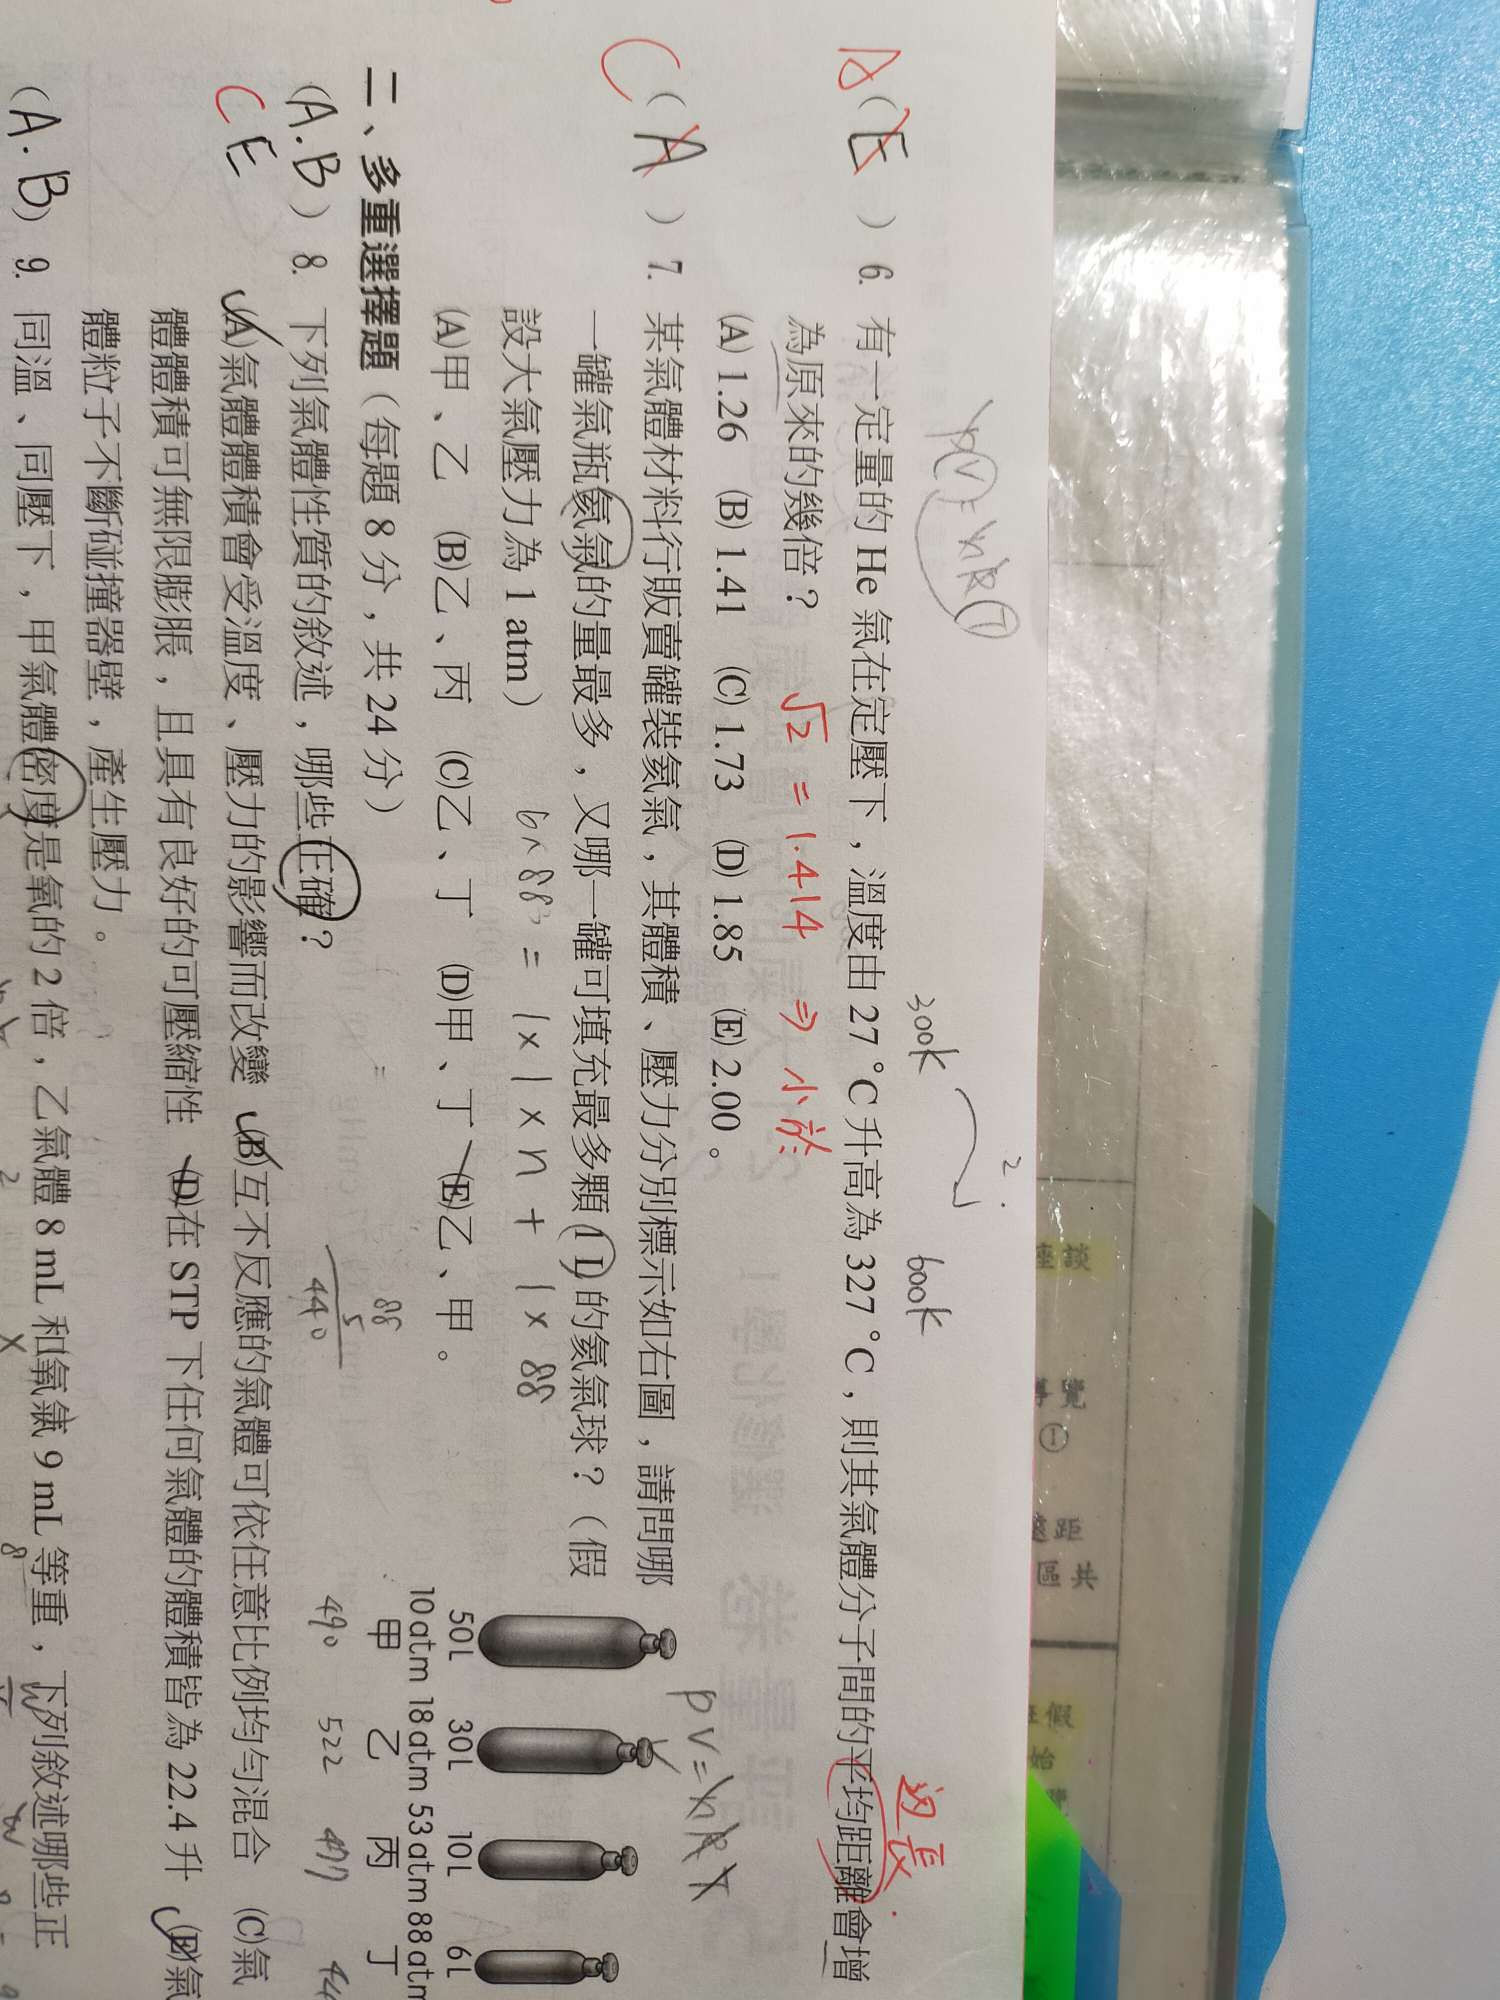 PV=nRT
300k
600k
2.
A
(E)6. 有一定量的 He 氣在定壓下，溫度由 27 °C 升高為 327 °C，則其氣體分子間的平均距離會增
為原來的幾倍？
√2 = 1.414 ⇒ 小於
边長
(A) 1.26 (B) 1.41 (C) 1.73 (D) 1.85 (E) 2.00。
C
(A)7. 某氣體材料行販賣罐裝氦氣，其體積、壓力分別標示如右圖，請問哪
一罐氣瓶氦氣的量最多，又哪一罐可填充最多顆 (1 L) 的氦氣球？（假
設大氣壓力為 1 atm）
6×88 = 1×1×n + 1×88
(A)甲、乙 (B)乙、丙 (C)乙、丁 (D)甲、丁 (E)乙、甲。
PV=nRT
50L 30L 10L 6L
10atm 18atm 53atm 88atm
甲 乙 丙 丁
490 522
88
5
440
二、多重選擇題（每題 8 分，共 24 分）
(A.B)8. 下列氣體性質的敘述，哪些正確？
C E
(A)氣體體積會受溫度、壓力的影響而改變 (B)互不反應的氣體可依任意比例均勻混合 (C)氣
體體積可無限膨脹，且具有良好的可壓縮性 (D)在 STP 下任何氣體的體積皆為 22.4 升 (E)氣
體粒子不斷碰撞器壁，產生壓力。
(A.B)9. 同溫、同壓下，甲氣體密度是氧的 2 倍，乙氣體 8 mL 和氧氣 9 mL 等重，下列敘述哪些正
座談
導覽
①
遠距
區共